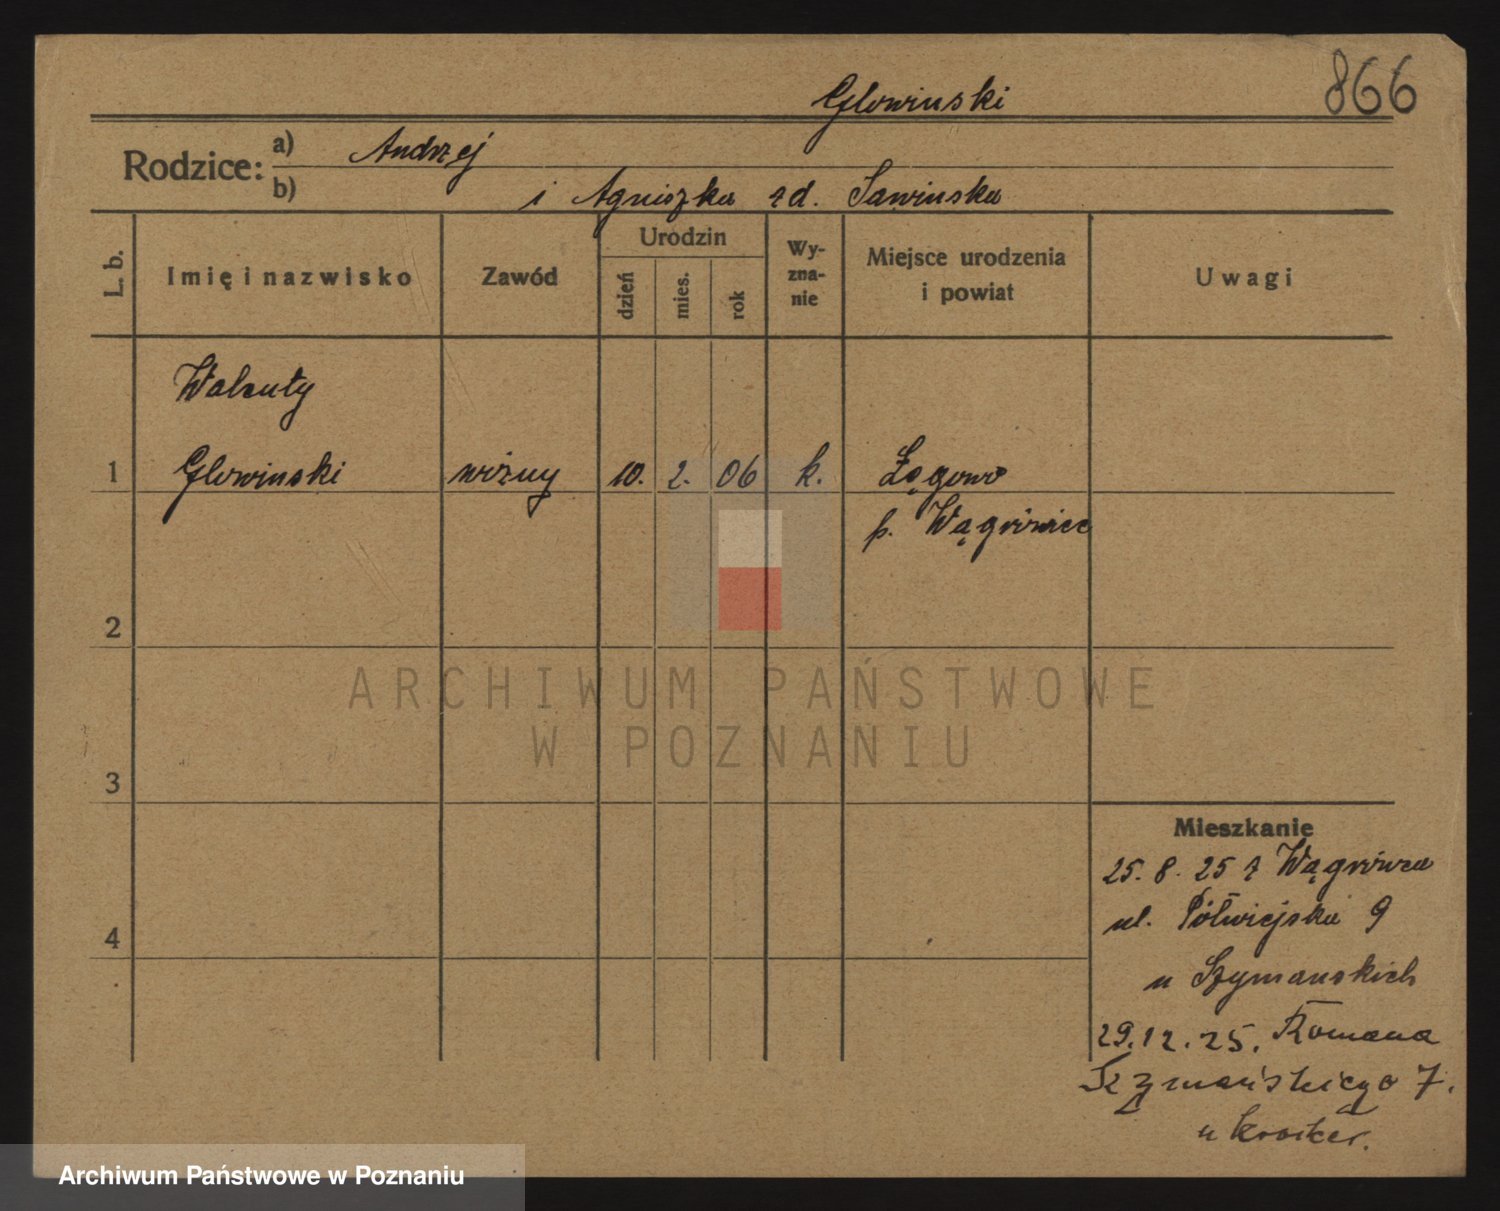 866
Glowinski
Rodzice: a) Andrzej
b) i Agniszka zd. Sawinska
L. b.
Imię i nazwisko
Zawód
Urodzin
dzień
mies.
rok
Wy-
zna-
nie
Miejsce urodzenia
i powiat
Uwagi
Walenty
1 Glowinski woźny 10. 2. 06 k. Łęgowo
p. Wągrówiec
2
3
4
Mieszkanie
25. 8. 25 z Wągrówca
ul. Półwiejska 9
u Szymanskich
29. 12. 25. Romana
Szymańskiego 7.
u
ARCHIWUM PAŃSTWOWE
W POZNANIU
Archiwum Państwowe w Poznaniu